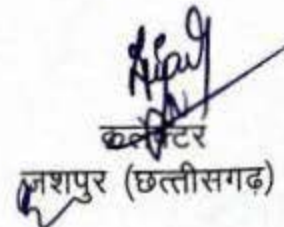 कलेक्टर
जशपुर (छत्तीसगढ़)